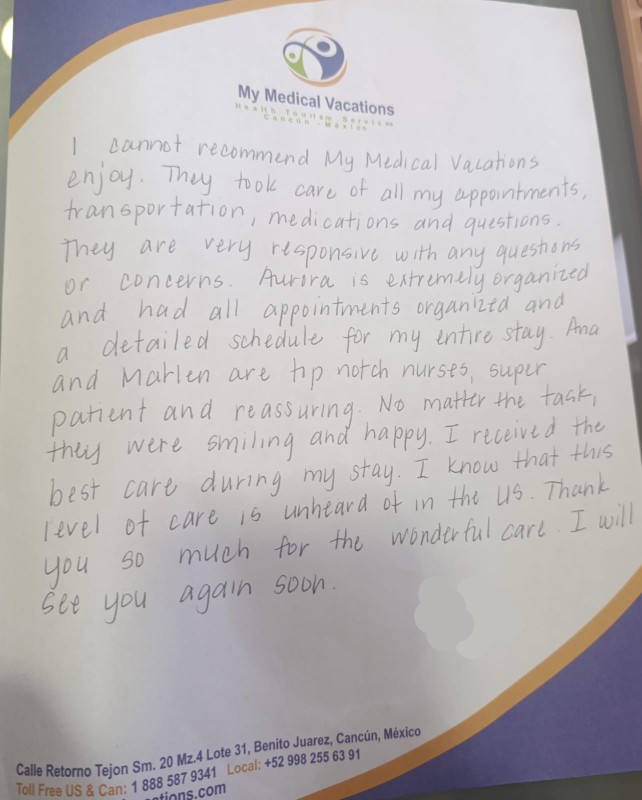 My Medical Vacations
Health Tourism Services
Cancún - México
I cannot recommend My Medical Vacations
enjoy. They took care of all my appointments,
transportation, medications and questions.
They are very responsive with any questions
or concerns. Aurora is extremely organized
and had all appointments organized and
a detailed schedule for my entire stay. Ana
and Marlen are tip notch nurses, super
patient and reassuring. No matter the task,
they were smiling and happy. I received the
best care during my stay. I know that this
level of care is unheard of in the US. Thank
you so much for the wonderful care. I will
see you again soon.
Calle Retorno Tejon Sm. 20 Mz.4 Lote 31, Benito Juarez, Cancún, México
Toll Free US & Can: 1 888 587 9341 Local: +52 998 255 63 91